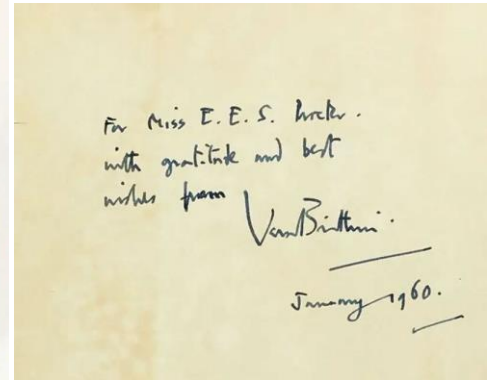 For Miss E. E. S. Procter.
with gratitude and best
wishes from
Vera Brittain.
January 1960.